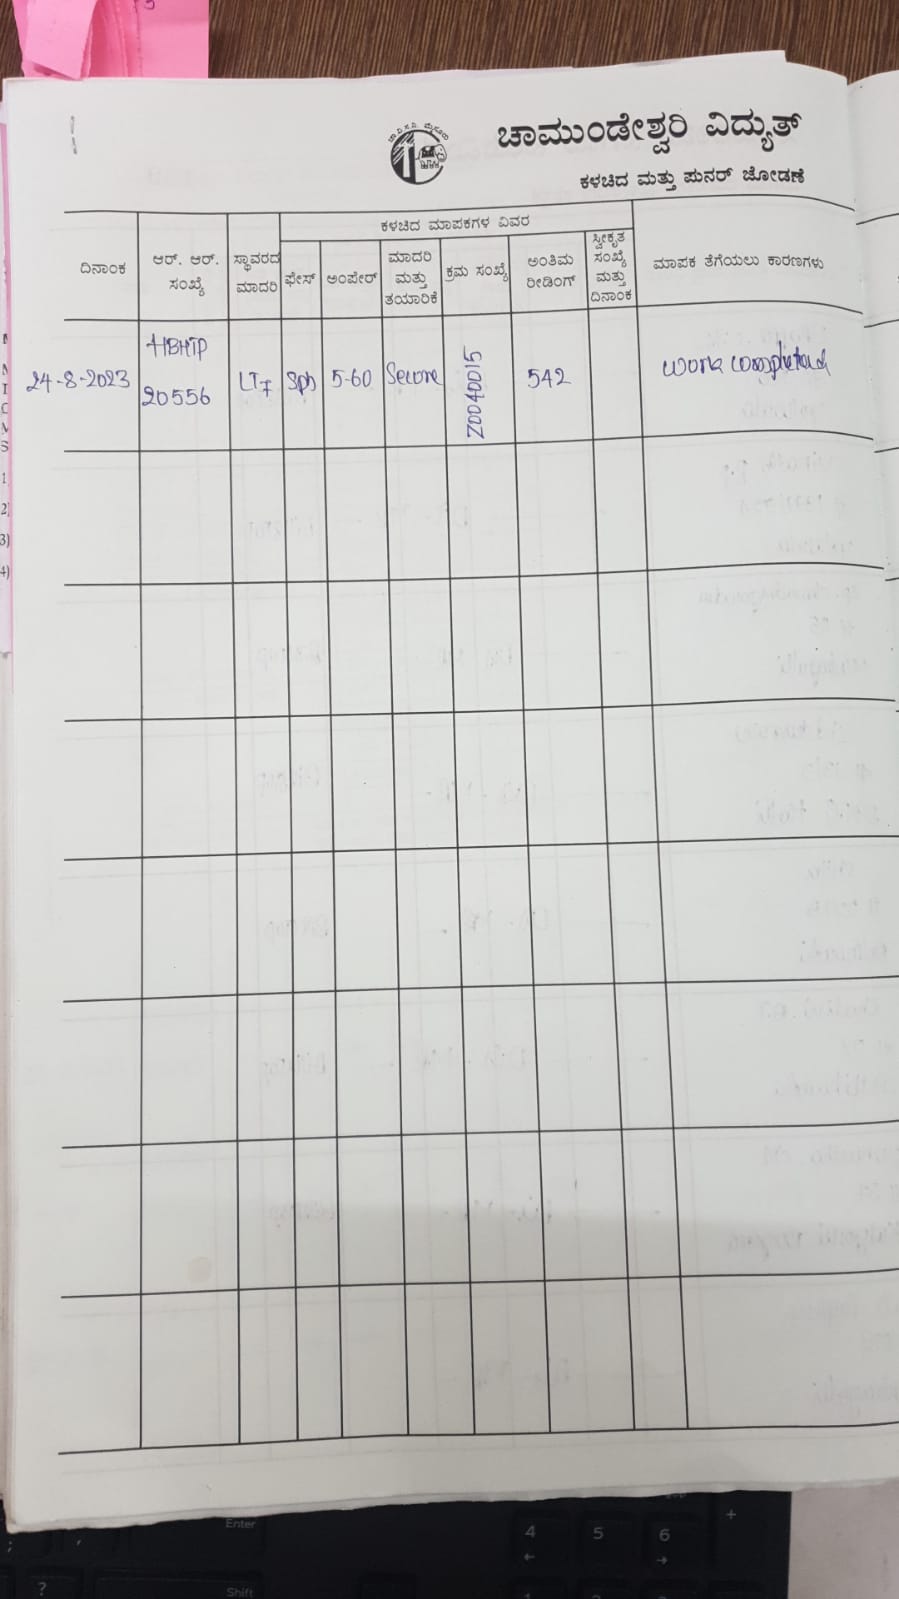 ಚಾಮುಂಡೇಶ್ವರಿ ವಿದ್ಯುತ್
ಕಳಚಿದ ಮತ್ತು ಪುನರ್ ಜೋಡಣೆ
ದಿನಾಂಕ
ಆರ್. ಆರ್.
ಸಂಖ್ಯೆ
ಸ್ಥಾವರದ
ಮಾದರಿ
ಕಳಚಿದ ಮಾಪಕಗಳ ವಿವರ
ಫೇಸ್
ಅಂಪೇರ್
ಮಾದರಿ
ಮತ್ತು
ತಯಾರಿಕೆ
ಕ್ರಮ ಸಂಖ್ಯೆ
ಅಂತಿಮ
ರೀಡಿಂಗ್
ಸ್ವೀಕೃತ
ಸಂಖ್ಯೆ
ಮತ್ತು
ದಿನಾಂಕ
ಮಾಪಕ ತೆಗೆಯಲು ಕಾರಣಗಳು
24-8-2023
HBHTP
20556
LT7
Sph
5-60
Secure
Z0040015
542
work completed
Enter
Shift
4
5
6
+
?
1)
2)
3)
4)